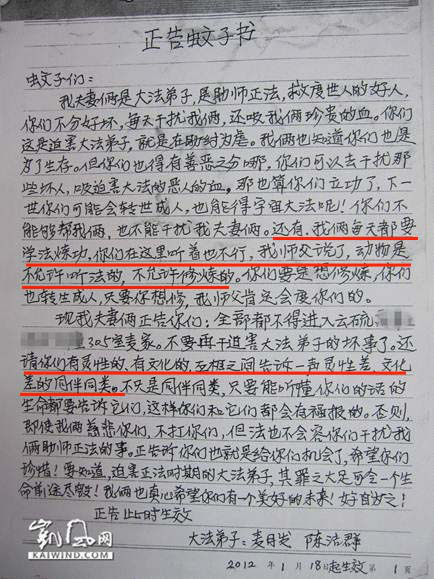 正告蚊子书
蚊子们：
我夫妻俩是大法弟子，是助师正法，救度世人的好人，
你们不分好坏，每天干扰我俩，还吸我俩珍贵的血。你们
这是迫害大法弟子，就是在助纣为虐。我俩也知道你们也是
为了生存。但你们也得有善恶之分哪，你们可以去干扰那
些坏人，吸迫害大法的恶人的血。那也算你们立功了，下一
世你们可能会转世成人，也能得宇宙大法呢！你们不
能够帮我俩，也不能干扰我夫妻俩。还有，我俩每天都要
学法炼功，你们在这里听着也不行，我师父说了，动物是
不允许听法的，不允许修炼的。你们要是想修炼，你们
也转生成人，只要你想修，我师父肯定会度你们的。
现我夫妻俩正告你们：全部都不得进入云硫
305室麦家。不要再干迫害大法弟子的坏事了。还
请你们有灵性的、有文化的，互相之间告诉一声灵性差、文化
差的同伴同类。不只是同伴同类，只要能听懂你们的话的
生命都要告诉它们，这样你们和它们都会有福报的。否则，
即使我俩慈悲你们，不打你们，但法也不会容你们干扰我
俩助师正法的事。正告你们也就是给你们机会了，希望你们
珍惜！要知道，迫害正法时期的大法弟子，其罪之大足可令一个生
命前途尽毁！我俩也真心希望你们有一个美好的未来！好自为之！
正告此时生效
大法弟子：麦日发 陈洁群
2012年1月18日起生效 第1页
凯风网
KAIWIND.COM